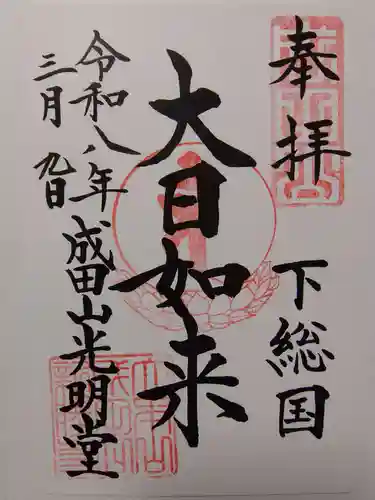 奉拝
下総国
大日如来
令和八年
三月九日
成田山光明堂